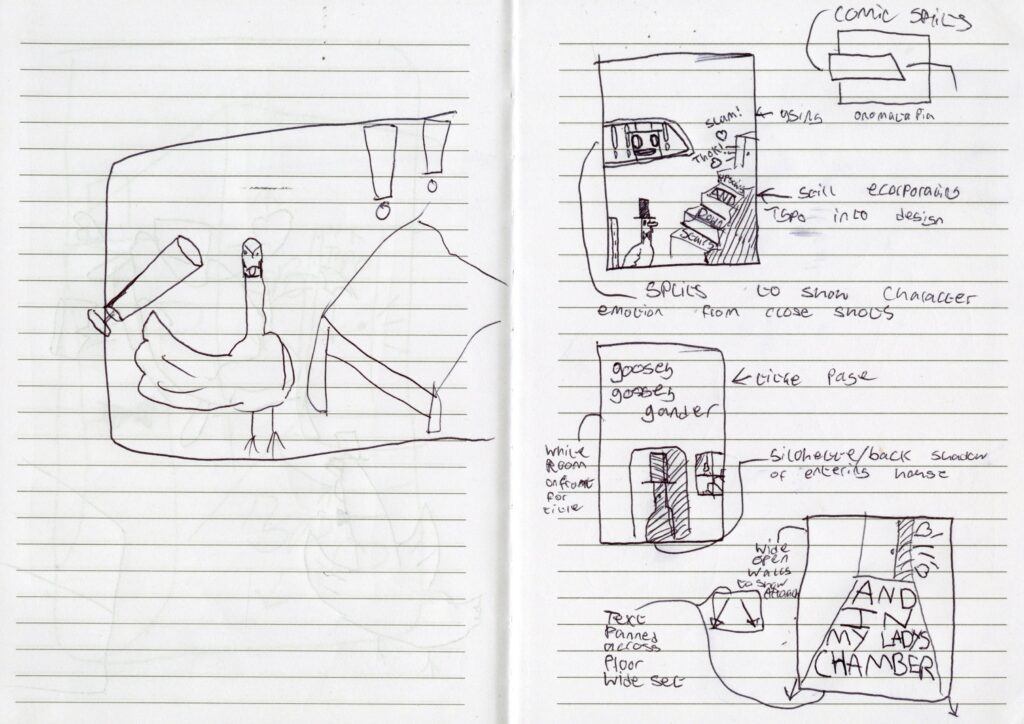 ! !
COMIC SPLITS
USING ONOMATAPIA
SLAM!
THOK!
AND
Down
Stairs
STILL ECORPORATING
TYPO INTO DESIGN
SPLITS TO SHOW CHARACTER
EMOTION FROM CLOSE SHOTS
goosey
goosey
gander
TITLE PAGE
WHITE
ROOM
ON FRONT
FOR
TITLE
SILOHETTE/BACK SHADOW
OF ENTERING HOUSE
WIDE
OPEN
WALLS
TO SHOW
TEXT
PANNED
ACROSS
FLOOR
WIDE SET
AND
IN
MY LADYS
CHAMBER